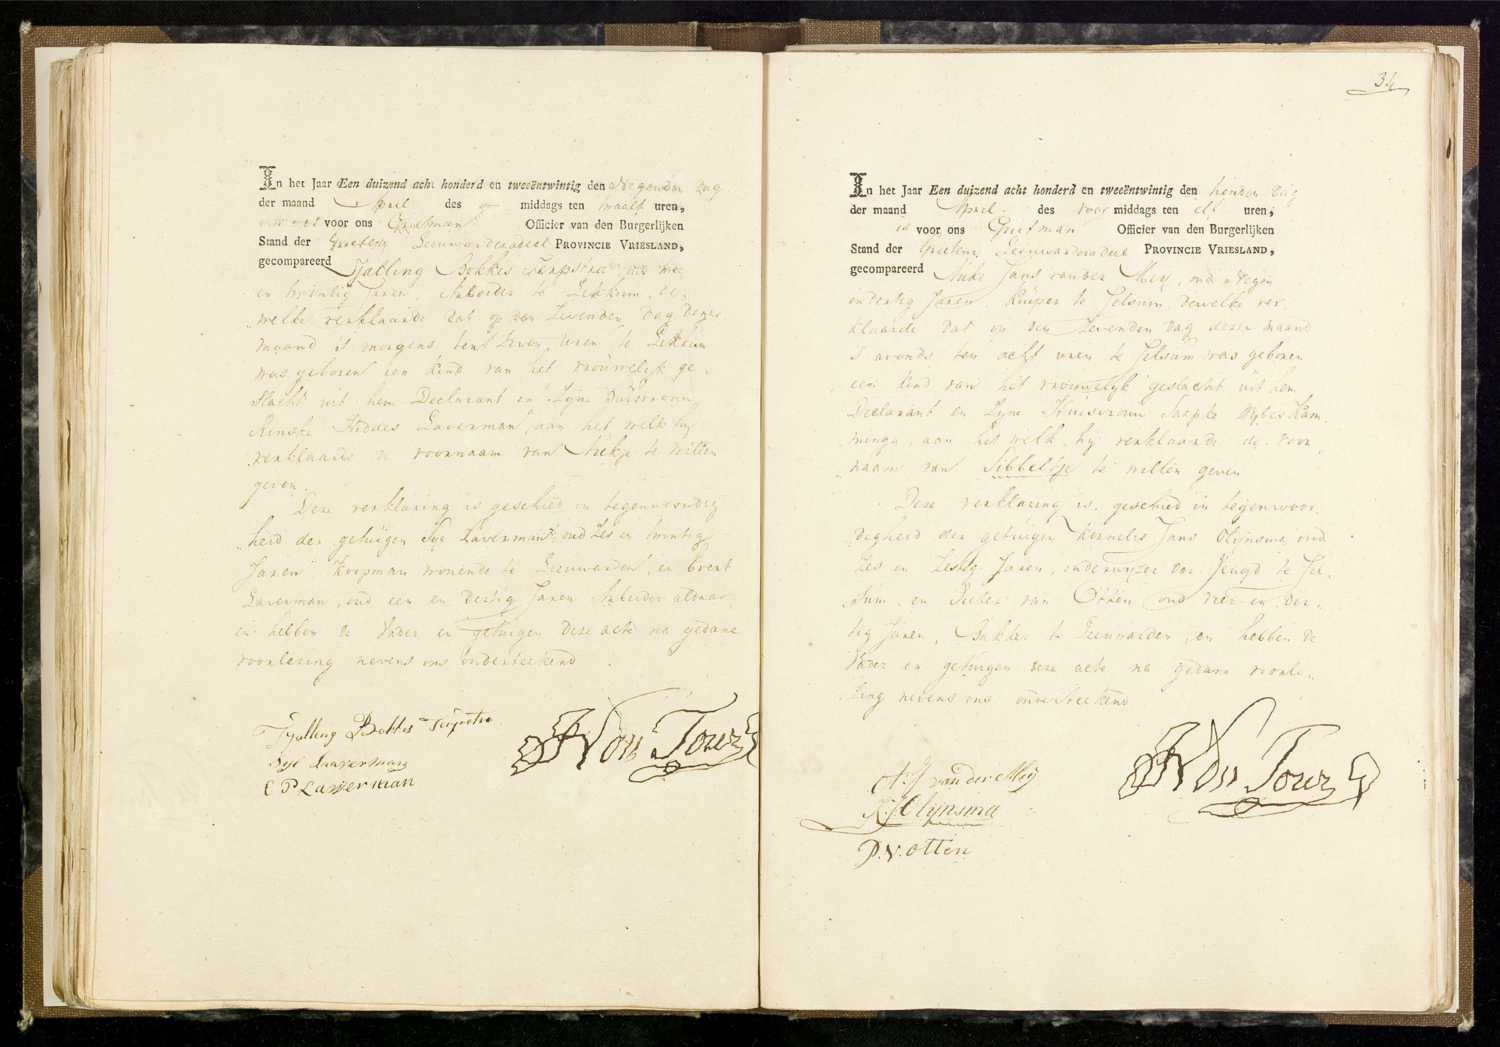 In het Jaar Een duizend acht honderd en tweeëntwintig den Negenden dag
der maand April des middags ten twaalf uren,
voor ons Grietman Officier van den Burgerlijken
Stand der Grieteny Leeuwarderadeel PROVINCIE VRIESLAND,
gecompareerd Tjalling Bokkes
en twintig Jaren, Arbeider te Lekkum, de
welke verklaarde dat op den Zevenden dag dezer
maand 's morgens ten Zeven uren te Lekkum
was geboren een kind van het vrouwelijk ge-
slacht uit hem Declarant en Zyne Huisvrouw
Rinske Feddes Laverman, aan het welk hij
verklaarde de voornaam van Aukje te willen
geven.
Deze verklaring is geschied in tegenwoordig
heid der getuigen Sye Laverman, oud Zes en twintig
Jaren, Koopman wonende te Leeuwarden, en
Laverman, oud een en dertig Jaren Arbeider aldaar
en hebben de Vader en getuigen deze acte na gedane
voorlezing nevens ons onderteekend
Tjalling Bokkes
Sye Laaverman
C P Laverman
34
In het Jaar Een duizend acht honderd en tweeëntwintig den tienden dag
der maand April des voor middags ten elf uren,
is voor ons Grietman Officier van den Burgerlijken
Stand der Grieteny Leeuwarderadeel PROVINCIE VRIESLAND,
gecompareerd Auke Jans van der Meij, oud Negen
en dertig Jaren, Kuiper te Jelsum, dewelke ver
klaarde dat op den Zevenden dag dezer maand
's avonds ten acht uren te Jelsum was geboren
een kind van het vrouwelijk geslacht uit hem
Declarant en Zyne Huisvrouw Kam
minga, aan het welk hij verklaarde de voor
naam van Sibbeltje te willen geven
Deze verklaring is geschied in tegenwoor
digheid der getuigen Kornelis Jans Olijnsma oud
Zes en Zestig Jaren, onderwijzer der Jeugd te Jel-
sum, en Pieter van Otten oud vier en der-
tig Jaren, Bakker te Leeuwarden, en hebben de
Vader en getuigen deze acte na gedane voorle-
zing nevens ons onderteekend
A: J van der Meij
K: J Olijnsma
P. V. Otten